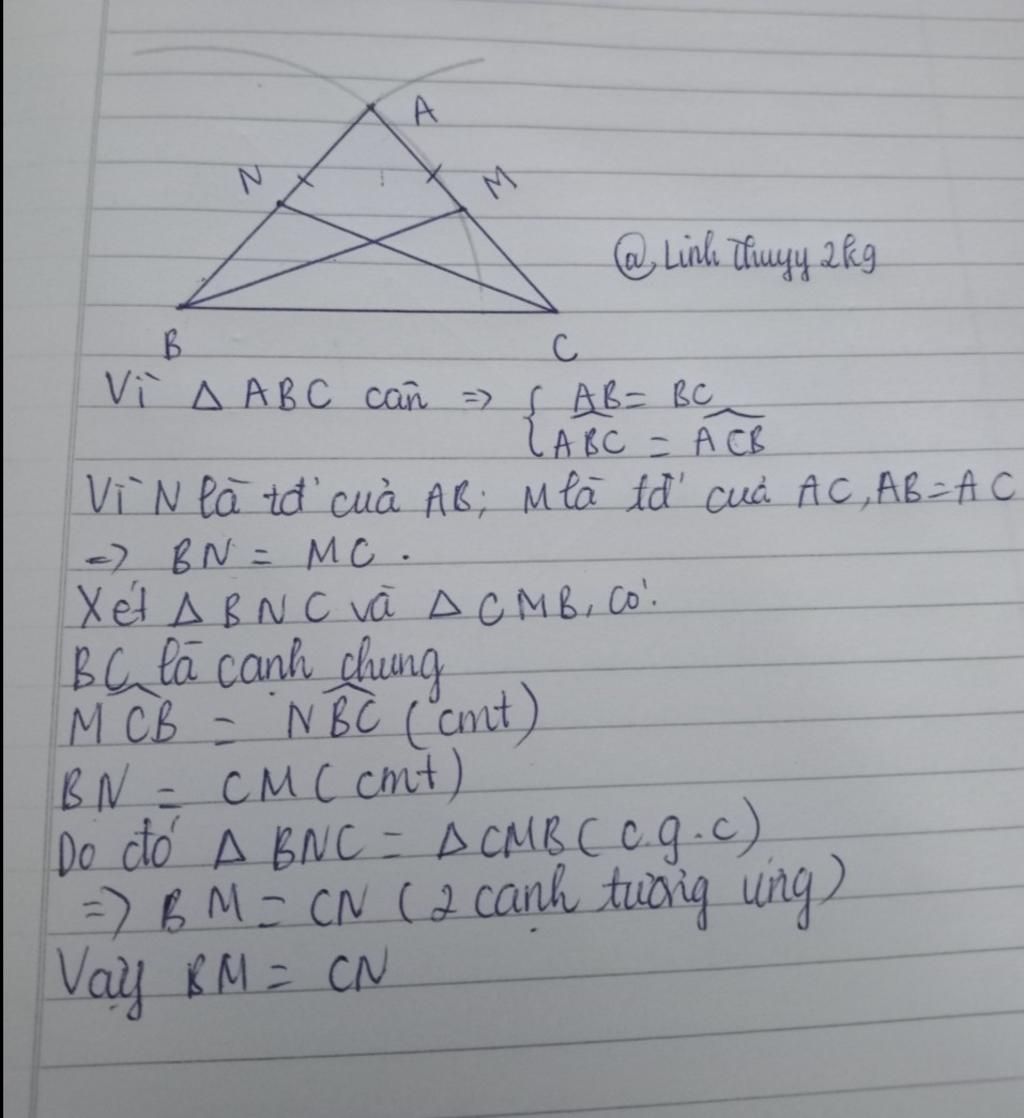 A
N
M
@ Linh Thuyy 2kg
B
C
Vì △ ABC cân => { AB = BC
ABC = ACB
Vì N là tđ' của AB; M là tđ' của AC, AB = AC
=> BN = MC.
Xét △ BNC và △ CMB, có:
BC là cạnh chung
MCB = NBC (cmt)
BN = CM (cmt)
Do đó △ BNC = △ CMB (c.g.c)
=> BM = CN (2 cạnh tương ứng)
Vậy BM = CN